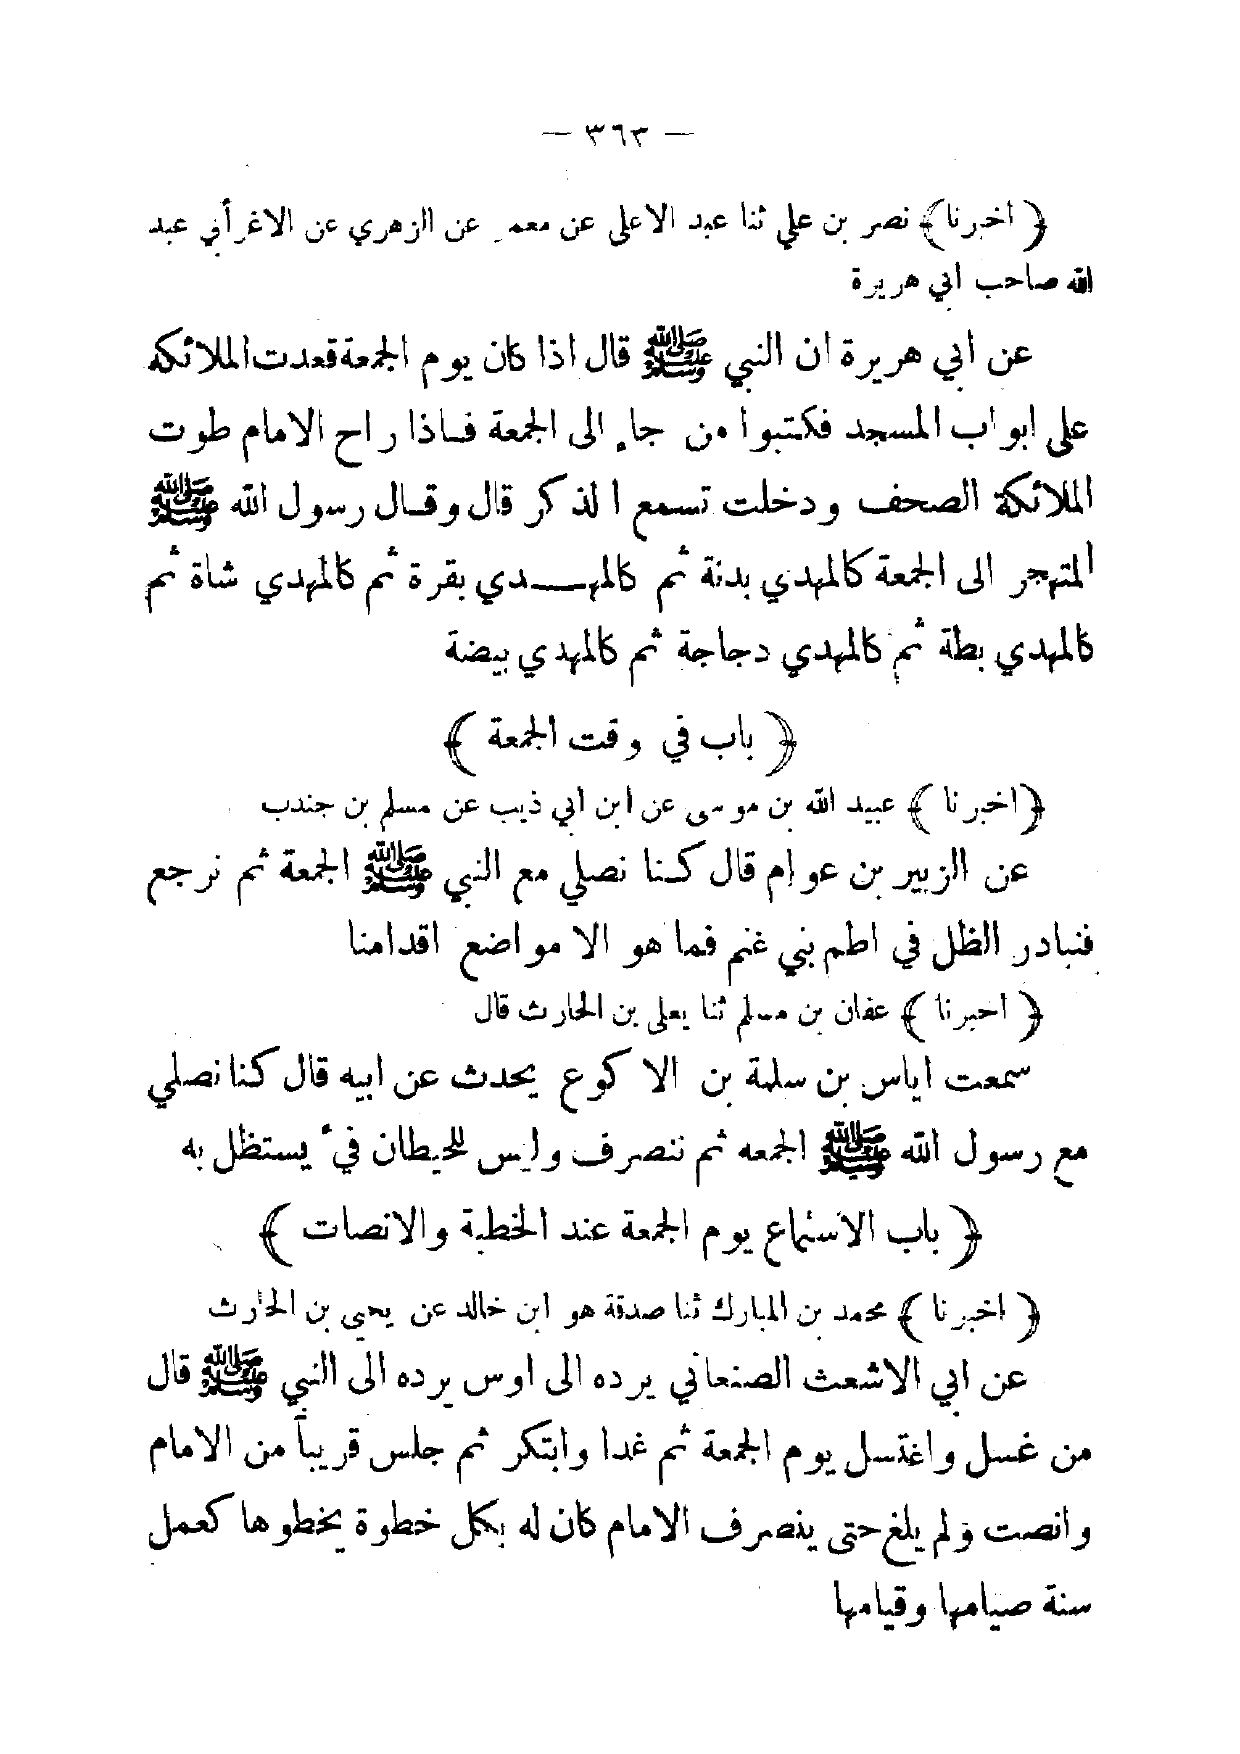 — ٣٦٣ —
﴿ اخبرنا ﴾ نصر بن علي ثنا عبد الاعلى عن معمر عن الزهري عن الاغر أبي عبد
الله صاحب ابي هريرة
عن ابي هريرة ان النبي ﷺ قال اذا كان يوم الجمعة قعدت الملائكة
على ابواب المسجد فكتبوا من جاء الى الجمعة فاذا راح الامام طوت
الملائكة الصحف ودخلت تسمع الذكر قال وقال رسول الله ﷺ
المتهجر الى الجمعة كالمهدي بدنة ثم كالمهــدي بقرة ثم كالمهدي شاة ثم
كالمهدي بطة ثم كالمهدي دجاجة ثم كالمهدي بيضة
﴿ باب في وقت الجمعة ﴾
﴿ اخبرنا ﴾ عبيد الله بن موسى عن ابن ابي ذيب عن مسلم بن جندب
عن الزبير بن عوام قال كنا نصلي مع النبي ﷺ الجمعة ثم نرجع
فنبادر الظل في اطم بني غنم فما هو الا مواضع اقدامنا
﴿ اخبرنا ﴾ عفان بن مسلم ثنا يعلى بن الحارث قال
سمعت اياس بن سلمة بن الاكوع يحدث عن ابيه قال كنا نصلي
مع رسول الله ﷺ الجمعه ثم ننصرف وليس للحيطان فيء يستظل به
﴿ باب الاستماع يوم الجمعة عند الخطبة والانصات ﴾
﴿ اخبرنا ﴾ محمد بن المبارك ثنا صدقة هو ابن خالد عن يحيى بن الحارث
عن ابي الاشعث الصنعاني يرده الى اوس يرده الى النبي ﷺ قال
من غسل واغتسل يوم الجمعة ثم غدا وابتكر ثم جلس قريباً من الامام
وانصت ولم يلغ حتى ينصرف الامام كان له بكل خطوة يخطوها كعمل
سنة صيامها وقيامها